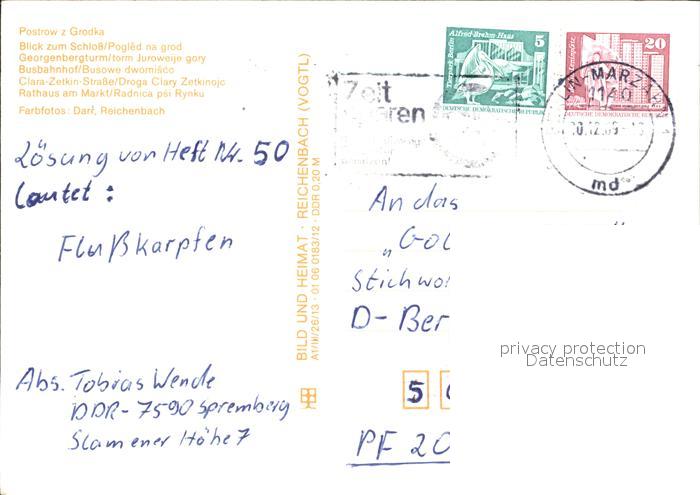 Postrow z Grodka
Blick zum Schloß/Pogléd na grod
Georgenbergturm/torm Juroweje gory
Busbahnhof/Busowe dwornišćo
Clara-Zetkin-Straße/Droga Clary Zetkinojc
Rathaus am Markt/Radnica psi Rynku
Farbfotos: Darr, Reichenbach
Lösung von Heft Nr. 50
Lautet:
Flußkarpfen
Abs. Tobias Wende
DDR-7590 Spremberg
Slamener Höhe 7
BILD UND HEIMAT · REICHENBACH (VOGTL)
A1/III/26/13 · 01 06 0183/12 · DDR 0,20 M
Zeit
Alfred-Brehm-Haus
5
Tierpark Berlin
DEUTSCHE DEMOKRATISCHE REPUBLIK
20
DEUTSCHE DEMOKRATISCHE
1140
md
An das
Stichwo
D-Ber
5
PF 20
privacy protection
Datenschutz